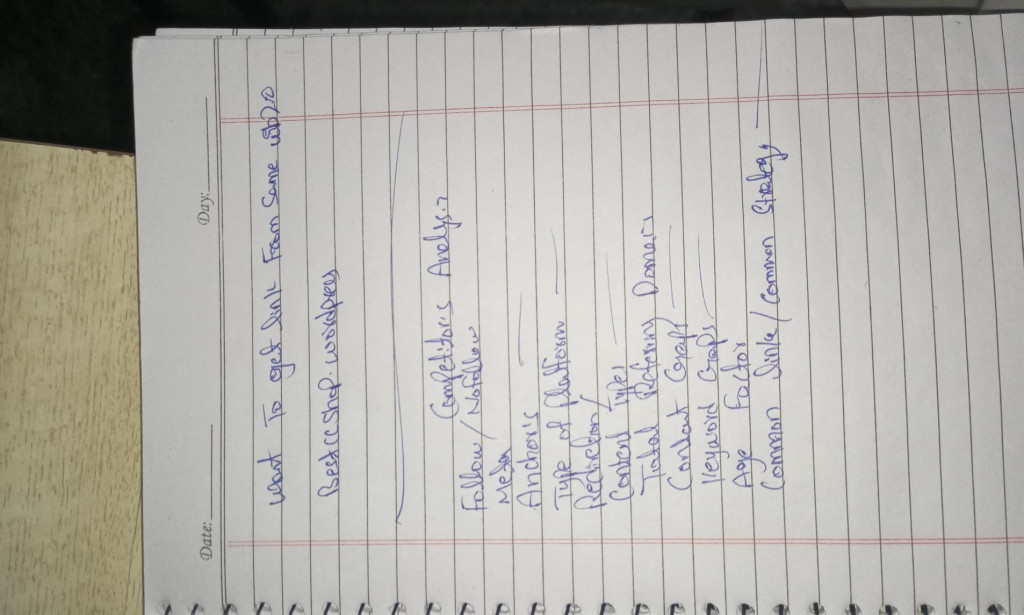 Date: Day:
Want To get link From Same web20
Bestccshop.wordpress
Competitor's Analysis
Follow / Nofollow
Meta
Anchor's
Type of Platform
Redirection /
Content Types
Total Refering Domains
Content Gaps
Keyword Gaps
Age Factor
Common links / Common Strategy